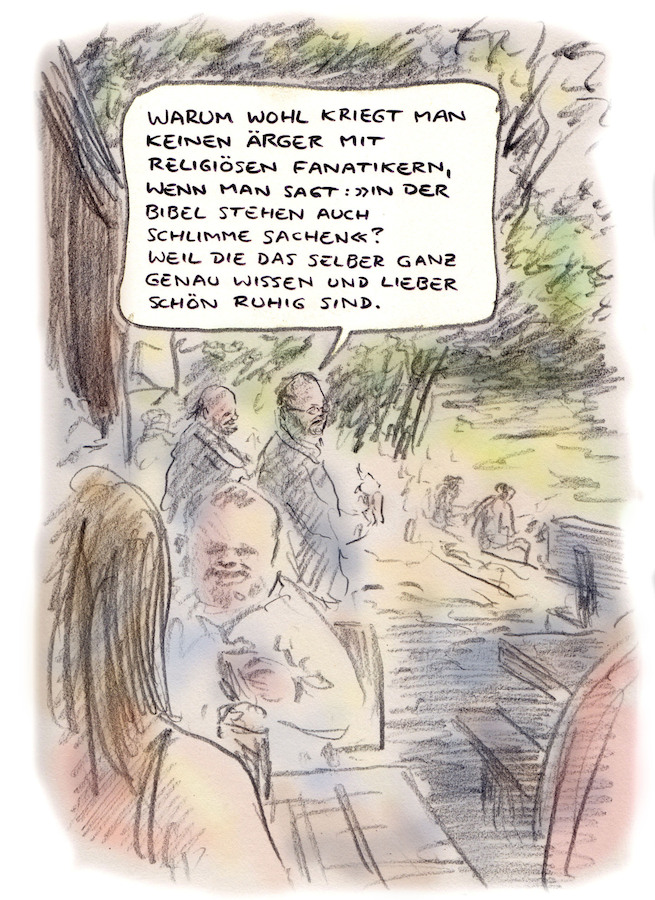 WARUM WOHL KRIEGT MAN
KEINEN ÄRGER MIT
RELIGIÖSEN FANATIKERN,
WENN MAN SAGT: »IN DER
BIBEL STEHEN AUCH
SCHLIMME SACHEN«?
WEIL DIE DAS SELBER GANZ
GENAU WISSEN UND LIEBER
SCHÖN RUHIG SIND.